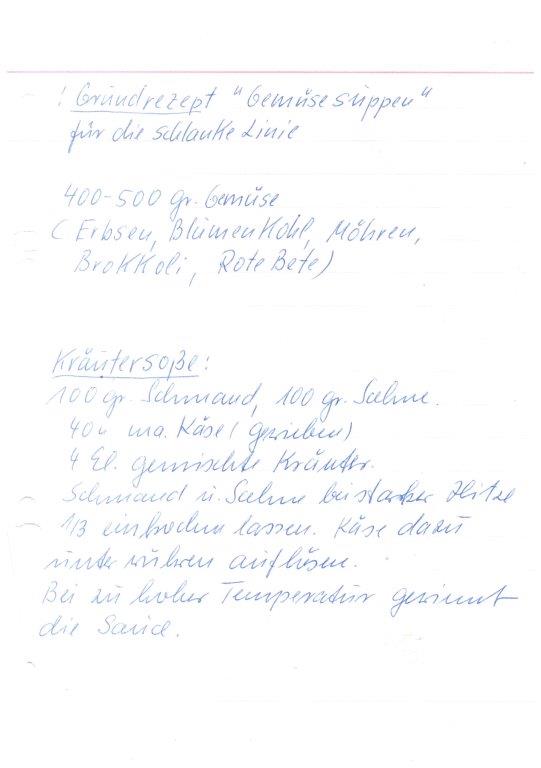 ! Grundrezept "Gemüsesuppen"
für die schlanke Linie
400-500 gr. Gemüse
( Erbsen, Blumenkohl, Möhren,
Brokkoli, Rote Bete)
Kräutersoße:
100 gr. Schmand, 100 gr. Sahne.
Käse (gerieben)
4 El. gemischte Kräuter.
Schmand u. Sahne bei starker Hitze
1/3 einkochen lassen. Käse dazu
unter rühren auflösen.
Bei zu hoher Temperatur gerinnt
die Sauce.